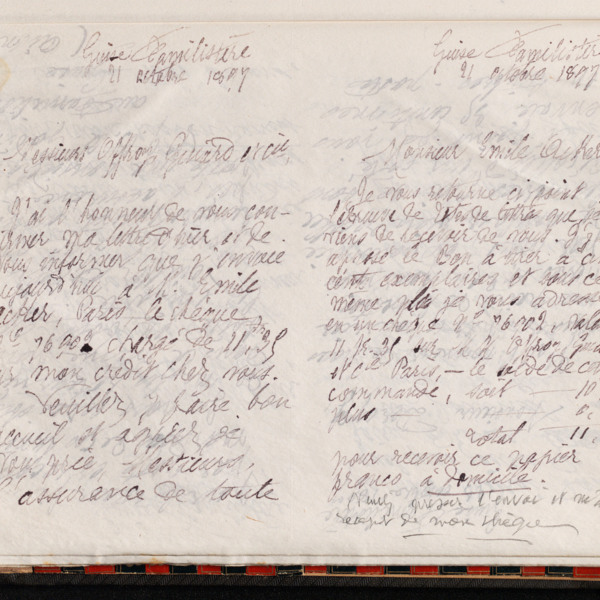 Guise Familistère
21 octobre 1897
Messieurs Offroy, Guiard et Cie,
J'ai l'honneur de vous con-
firmer ma lettre d'hier et de
vous informer que j'envoie
aujourd'hui à M. Emile
Acker, Paris le chèque
76902 chargé de 11 35
sur mon crédit chez vous.
Veuillez y faire bon
accueil et agréer je
vous prie, Messieurs,
l'assurance de toute
Guise Familistère
21 octobre 1897
Monsieur Emile Acker
Je vous retourne ci joint
l'épreuve de de lettre que je
viens de recevoir de vous. J'y
apposé le Bon à tirer à
cent exemplaires et sous ce
même pli je vous adresse
en un chèque No 76902, val
11 fr 35 sur MM. Offroy, Gui
et Cie Paris, — le solde de com
commande, soit — 10
plus 0,
total — 11,
pour recevoir ce papier
franco à domicile.
presser l'envoi et m'
de mon chèque